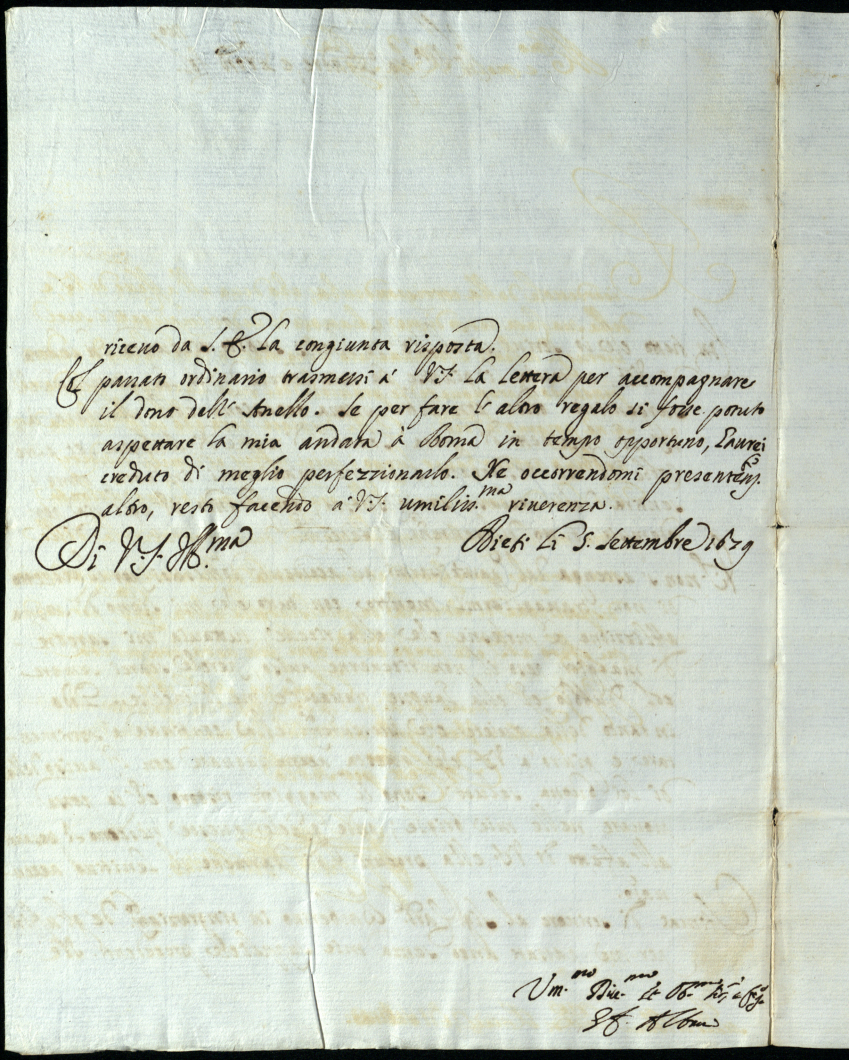 riceuo da S. E. la congiunta risposta.
Col passato ordinario trasmessi à V.S. la lettera per accompagnare
il dono dell' Anello. Se per fare l' altro regalo si fosse potuto
aspettare la mia andata à Roma in tempo opportuno, l'aurei
creduto di meglio perfezzionarlo. Ne occorrendomi presentem.te
altro, resto facendo à V.S. umiliss.ma riuerenza.
Di V.S. Ill.ma Rieti li 5. Settembre 1679
Um.mo Diu.mo et Obb.mo